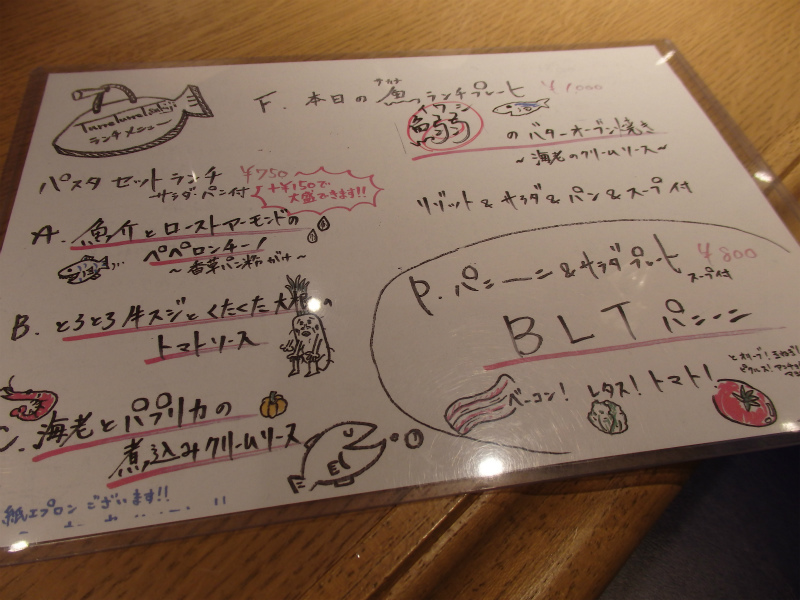 TsureTsureTsukiji
ランチメニュー
パスタ セットランチ ¥750
サラダ・パン付
+¥150で
大盛できます!!
A. 魚介とローストアーモンドの
ペペロンチーノ
～香草パン粉がけ～
B. とろとろ牛スジとくたくた大根の
トマトソース
C. 海老とパプリカの
煮込みクリームソース
紙エプロンございます!!
F. 本日の魚っランチプレート ¥1000
イワシ
鰯
のバターオーブン焼き
～海老のクリームソース～
リゾット&サラダ&パン&スープ付
P. パニーニ&サラダプレート ¥800
スープ付
BLTパニーニ
ベーコン! レタス! トマト!
とオリーブ!
ピクルス!